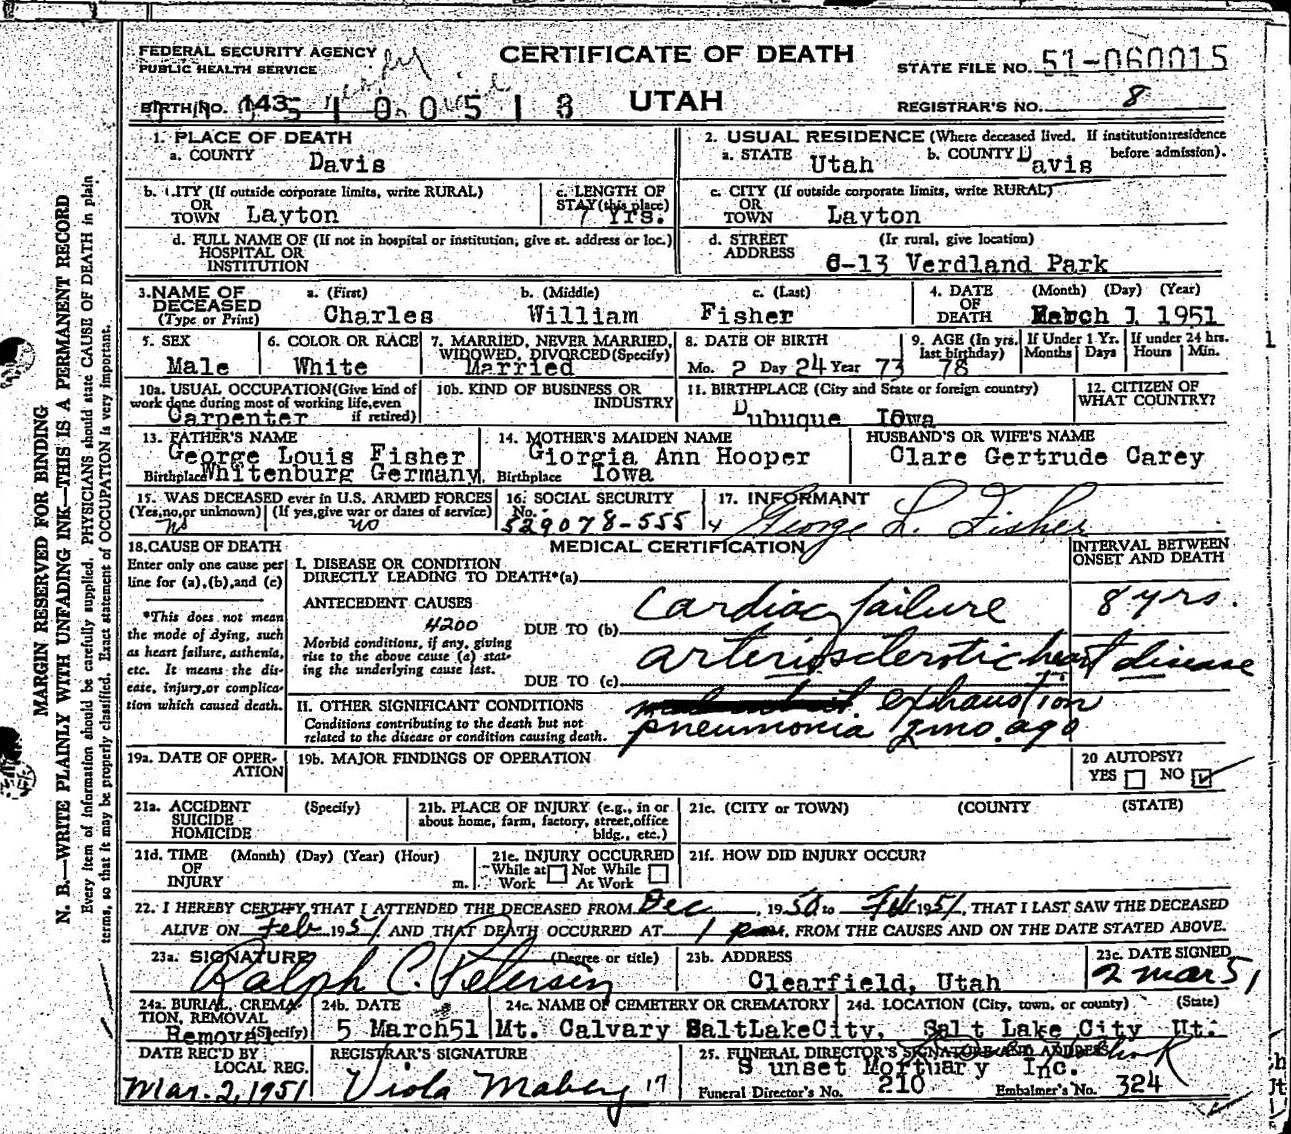 FEDERAL SECURITY AGENCY
PUBLIC HEALTH SERVICE
CERTIFICATE OF DEATH
STATE FILE NO. 51-060015
BIRTH NO. 143 5 1 0 0 5 1 8
UTAH
REGISTRAR'S NO. 8
MARGIN RESERVED FOR BINDING
N. B.—WRITE PLAINLY WITH UNFADING INK—THIS IS A PERMANENT RECORD
Every item of information should be carefully supplied. PHYSICIANS should state CAUSE OF DEATH in plain
terms, so that it may be properly classified. Exact statement of OCCUPATION is very important.
1. PLACE OF DEATH
a. COUNTY Davis
2. USUAL RESIDENCE (Where deceased lived. If institution:residence before admission).
a. STATE Utah b. COUNTY Davis
b. CITY (If outside corporate limits, write RURAL)
OR TOWN Layton
c. LENGTH OF STAY (this place) 7 Yrs.
c. CITY (If outside corporate limits, write RURAL)
OR TOWN Layton
d. FULL NAME OF (If not in hospital or institution, give st. address or loc.)
HOSPITAL OR
INSTITUTION
d. STREET ADDRESS (If rural, give location)
C-13 Verdland Park
3. NAME OF DECEASED (Type or Print)
a. (First) b. (Middle) c. (Last)
Charles William Fisher
4. DATE OF DEATH (Month) (Day) (Year)
March 1 1951
5. SEX
Male
6. COLOR OR RACE
White
7. MARRIED, NEVER MARRIED, WIDOWED, DIVORCED (Specify)
Married
8. DATE OF BIRTH
Mo. 2 Day 24 Year 73
9. AGE (In yrs. last birthday)
78
If Under 1 Yr. Months Days
If under 24 hrs. Hours Min.
10a. USUAL OCCUPATION (Give kind of work done during most of working life, even if retired)
Carpenter
10b. KIND OF BUSINESS OR INDUSTRY
11. BIRTHPLACE (City and State or foreign country)
Dubuque Iowa
12. CITIZEN OF WHAT COUNTRY?
13. FATHER'S NAME
George Louis Fisher
Birthplace Whitenburg Germany
14. MOTHER'S MAIDEN NAME
Giorgia Ann Hooper
Birthplace Iowa
HUSBAND'S OR WIFE'S NAME
Clare Gertrude Carey
15. WAS DECEASED ever in U.S. ARMED FORCES
(Yes, no, or unknown) (If yes, give war or dates of service)
no no
16. SOCIAL SECURITY No.
529078-555 4
17. INFORMANT
George L. Fisher
18. CAUSE OF DEATH
Enter only one cause per line for (a), (b), and (c)
*This does not mean the mode of dying, such as heart failure, asthenia, etc. It means the disease, injury, or complication which caused death.
MEDICAL CERTIFICATION
INTERVAL BETWEEN ONSET AND DEATH
I. DISEASE OR CONDITION
DIRECTLY LEADING TO DEATH*(a)
ANTECEDENT CAUSES
4200
Morbid conditions, if any, giving rise to the above cause (a) stating the underlying cause last.
DUE TO (b) Cardiac failure 8 yrs.
DUE TO (c) arteriosclerotic heart disease
II. OTHER SIGNIFICANT CONDITIONS
Conditions contributing to the death but not related to the disease or condition causing death.
exhaustion
pneumonia 2 mo. ago
19a. DATE OF OPERATION
19b. MAJOR FINDINGS OF OPERATION
20 AUTOPSY?
YES NO
21a. ACCIDENT SUICIDE HOMICIDE (Specify)
21b. PLACE OF INJURY (e.g., in or about home, farm, factory, street, office bldg., etc.)
21c. (CITY or TOWN) (COUNTY) (STATE)
21d. TIME OF INJURY (Month) (Day) (Year) (Hour) m.
21e. INJURY OCCURRED
While at Work Not While At Work
21f. HOW DID INJURY OCCUR?
22. I HEREBY CERTIFY THAT I ATTENDED THE DECEASED FROM Dec, 1950 to Feb 1951, THAT I LAST SAW THE DECEASED
ALIVE ON Feb 1951 AND THAT DEATH OCCURRED AT 1 pm, FROM THE CAUSES AND ON THE DATE STATED ABOVE.
23a. SIGNATURE (Degree or title)
Ralph C. Petersen
23b. ADDRESS
Clearfield, Utah
23c. DATE SIGNED
2 mar 51
24a. BURIAL, CREMATION, REMOVAL (Specify)
Removal
24b. DATE
5 March 51
24c. NAME OF CEMETERY OR CREMATORY
Mt. Calvary SaltLakeCity,
24d. LOCATION (City, town, or county) (State)
Salt Lake City Ut.
DATE REC'D BY LOCAL REG.
Mar. 2, 1951
REGISTRAR'S SIGNATURE
Viola Mabey 17
25. FUNERAL DIRECTOR'S SIGNATURE AND ADDRESS
Sunset Mortuary Inc.
Funeral Director's No. 210 Embalmer's No. 324